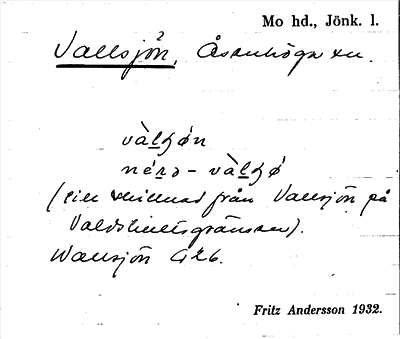 Mo hd., Jönk. l.
Vallsjön, Åsenhöga sn.
vàlʒøn
né̱rə - vàlʒǿ
(till skillnad från Vallsjön på
Valdshultsgränsen).
Wallsjön Grb.
Fritz Andersson 1932.